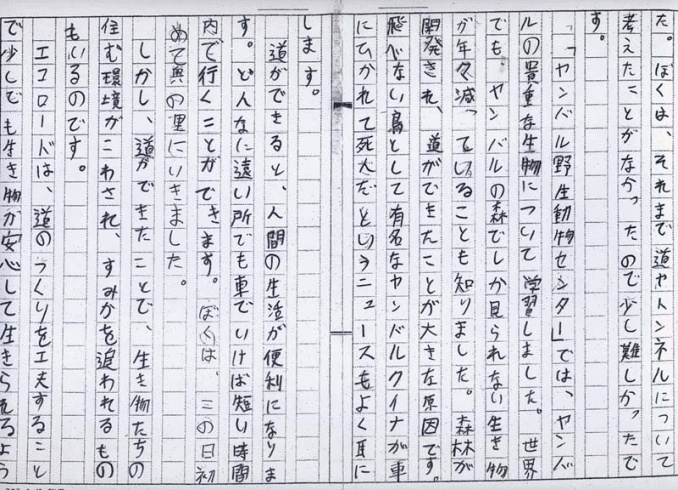 た。ぼくは、それまで道やトンネルについて
考えたことがなかったので少し難しかったで
す。
「ヤンバル野生動物センター」では、ヤンバ
ルの貴重な生物について学習しました。世界
でも、ヤンバルの森でしか見られない生き物
が年々減っていることも知りました。森林が
開発され、道ができたことが大きな原因です。
飛べない鳥として有名なヤンバルクイナが車
にひかれて死んだというニュースもよく耳に
します。
道ができると、人間の生活が便利になりま
す。どんなに遠い所でも車でいけば短い時間
内で行くことができます。ぼくは、この日初
めて奥の里にいきました。
しかし、道ができたことで、生き物たちの
住む環境がこわされ、すみかを追われるもの
もいるのです。
エコロードは、道のつくりを工夫すること
で少しでも生き物が安心して生きられるよう